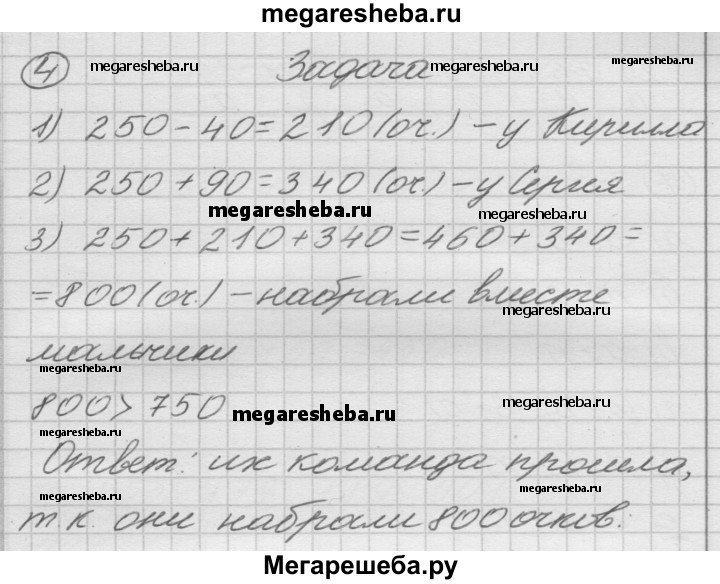 megaresheba.ru
④ megaresheba.ru Задача megaresheba.ru megaresheba.ru
1) 250 - 40 = 210 (оч.) - у Кирилла
2) 250 + 90 = 340 (оч.) - у Сергея
megaresheba.ru megaresheba.ru
3) 250 + 210 + 340 = 460 + 340 =
= 800 (оч.) - набрали вместе
megaresheba.ru
мальчики
megaresheba.ru
800 > 750 megaresheba.ru
megaresheba.ru
Ответ: их команда прошла,
megaresheba.ru megaresheba.ru
т.к. они набрали 800 очков.
Мегарешеба.ру